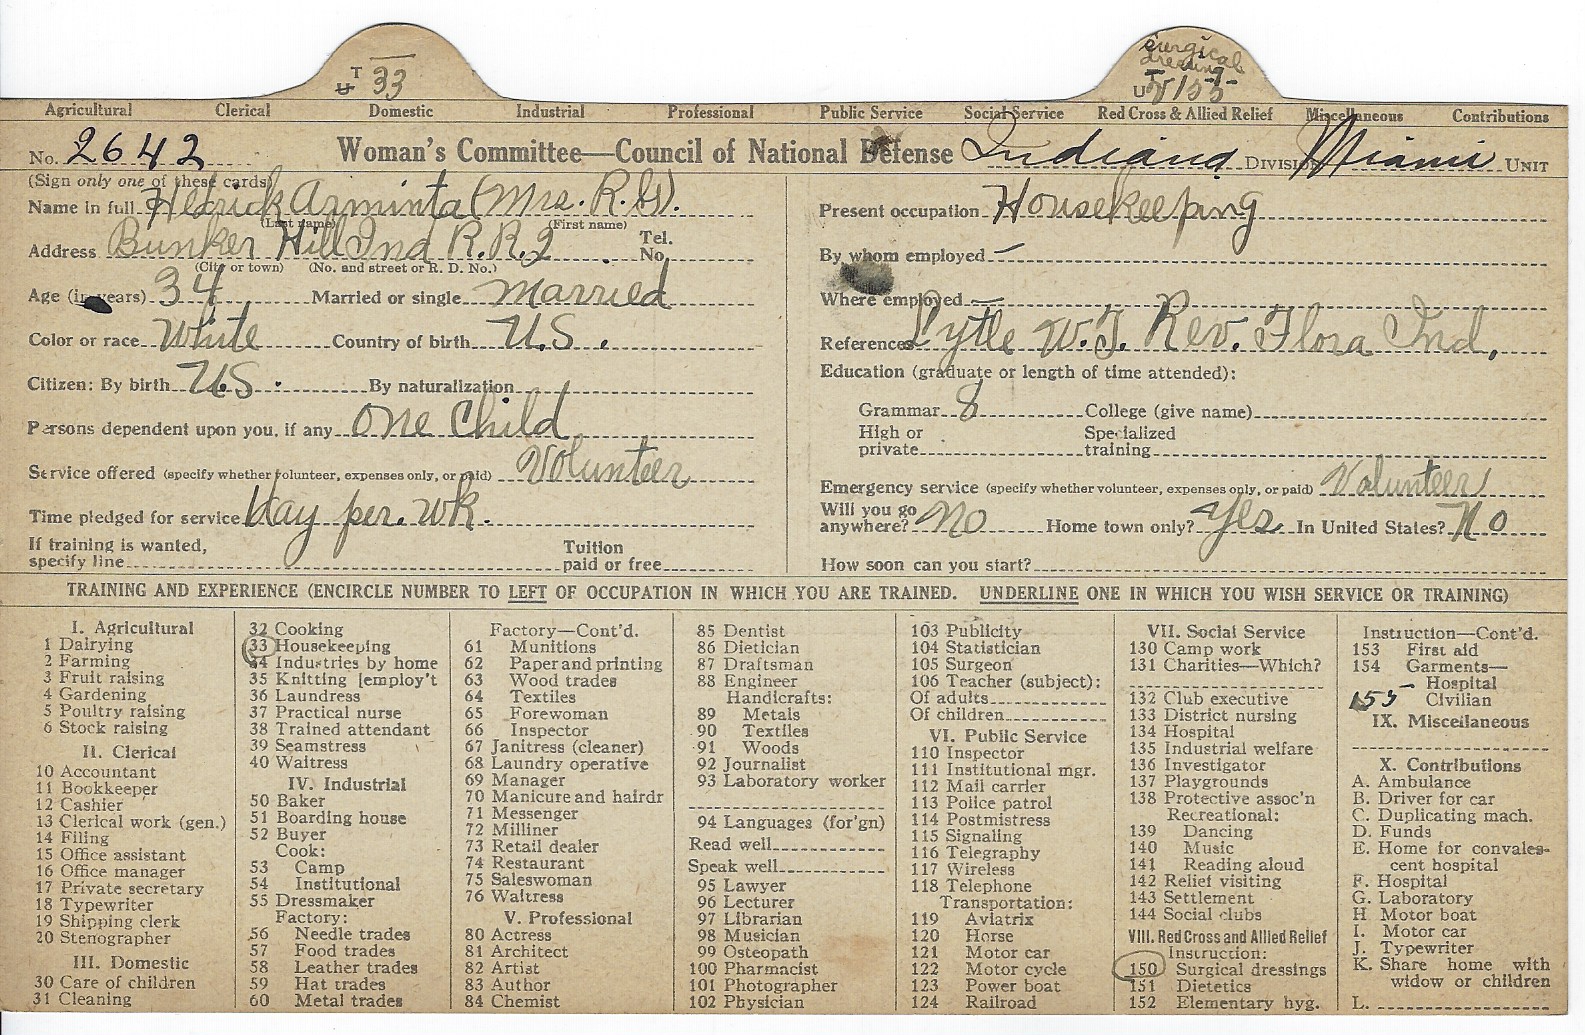 T
U 33
surgical
dressing
T
U V155
Agricultural Clerical Domestic Industrial Professional Public Service Social Service Red Cross & Allied Relief Miscellaneous Contributions
No. 2642 Woman's Committee—Council of National Defense Indiana DIVISION Miami UNIT
(Sign only one of these cards)
Name in full Hetrick Arminta (Mrs. R. G).
(Last name) (First name)
Address Bunker Hill Ind R. R. 2 Tel. No.
(City or town) (No. and street or R. D. No.)
Age (in years) 34 Married or single married
Color or race White Country of birth U.S.
Citizen: By birth U.S. By naturalization
Persons dependent upon you, if any One Child
Service offered (specify whether volunteer, expenses only, or paid) Volunteer
Time pledged for service day per. wk.
If training is wanted,
specify line Tuition
paid or free
Present occupation Housekeeping
By whom employed —
Where employed —
References Lytle W. T. Rev. Flora Ind.
Education (graduate or length of time attended):
Grammar 8 College (give name)
High or
private Specialized
training
Emergency service (specify whether volunteer, expenses only, or paid) Volunteer
Will you go
anywhere? No Home town only? Yes In United States? No
How soon can you start?
TRAINING AND EXPERIENCE (ENCIRCLE NUMBER TO LEFT OF OCCUPATION IN WHICH YOU ARE TRAINED. UNDERLINE ONE IN WHICH YOU WISH SERVICE OR TRAINING)
I. Agricultural
1 Dairying
2 Farming
3 Fruit raising
4 Gardening
5 Poultry raising
6 Stock raising
II. Clerical
10 Accountant
11 Bookkeeper
12 Cashier
13 Clerical work (gen.)
14 Filing
15 Office assistant
16 Office manager
17 Private secretary
18 Typewriter
19 Shipping clerk
20 Stenographer
III. Domestic
30 Care of children
31 Cleaning
32 Cooking
33 Housekeeping
34 Industries by home
35 Knitting [employ't
36 Laundress
37 Practical nurse
38 Trained attendant
39 Seamstress
40 Waitress
IV. Industrial
50 Baker
51 Boarding house
52 Buyer
Cook:
53 Camp
54 Institutional
55 Dressmaker
Factory:
56 Needle trades
57 Food trades
58 Leather trades
59 Hat trades
60 Metal trades
Factory—Cont'd.
61 Munitions
62 Paper and printing
63 Wood trades
64 Textiles
65 Forewoman
66 Inspector
67 Janitress (cleaner)
68 Laundry operative
69 Manager
70 Manicure and hairdr
71 Messenger
72 Milliner
73 Retail dealer
74 Restaurant
75 Saleswoman
76 Waitress
V. Professional
80 Actress
81 Architect
82 Artist
83 Author
84 Chemist
85 Dentist
86 Dietician
87 Draftsman
88 Engineer
Handicrafts:
89 Metals
90 Textiles
91 Woods
92 Journalist
93 Laboratory worker
94 Languages (for'gn)
Read well
Speak well
95 Lawyer
96 Lecturer
97 Librarian
98 Musician
99 Osteopath
100 Pharmacist
101 Photographer
102 Physician
103 Publicity
104 Statistician
105 Surgeon
106 Teacher (subject):
Of adults
Of children
VI. Public Service
110 Inspector
111 Institutional mgr.
112 Mail carrier
113 Police patrol
114 Postmistress
115 Signaling
116 Telegraphy
117 Wireless
118 Telephone
Transportation:
119 Aviatrix
120 Horse
121 Motor car
122 Motor cycle
123 Power boat
124 Railroad
VII. Social Service
130 Camp work
131 Charities—Which?
132 Club executive
133 District nursing
134 Hospital
135 Industrial welfare
136 Investigator
137 Playgrounds
138 Protective assoc'n
Recreational:
139 Dancing
140 Music
141 Reading aloud
142 Relief visiting
143 Settlement
144 Social clubs
VIII. Red Cross and Allied Relief
Instruction:
150 Surgical dressings
151 Dietetics
152 Elementary hyg.
Instruction—Cont'd.
153 First aid
154 Garments—
Hospital
155 Civilian
IX. Miscellaneous
X. Contributions
A. Ambulance
B. Driver for car
C. Duplicating mach.
D. Funds
E. Home for convales-
cent hospital
F. Hospital
G. Laboratory
H Motor boat
I. Motor car
J. Typewriter
K. Share home with
widow or children
L.